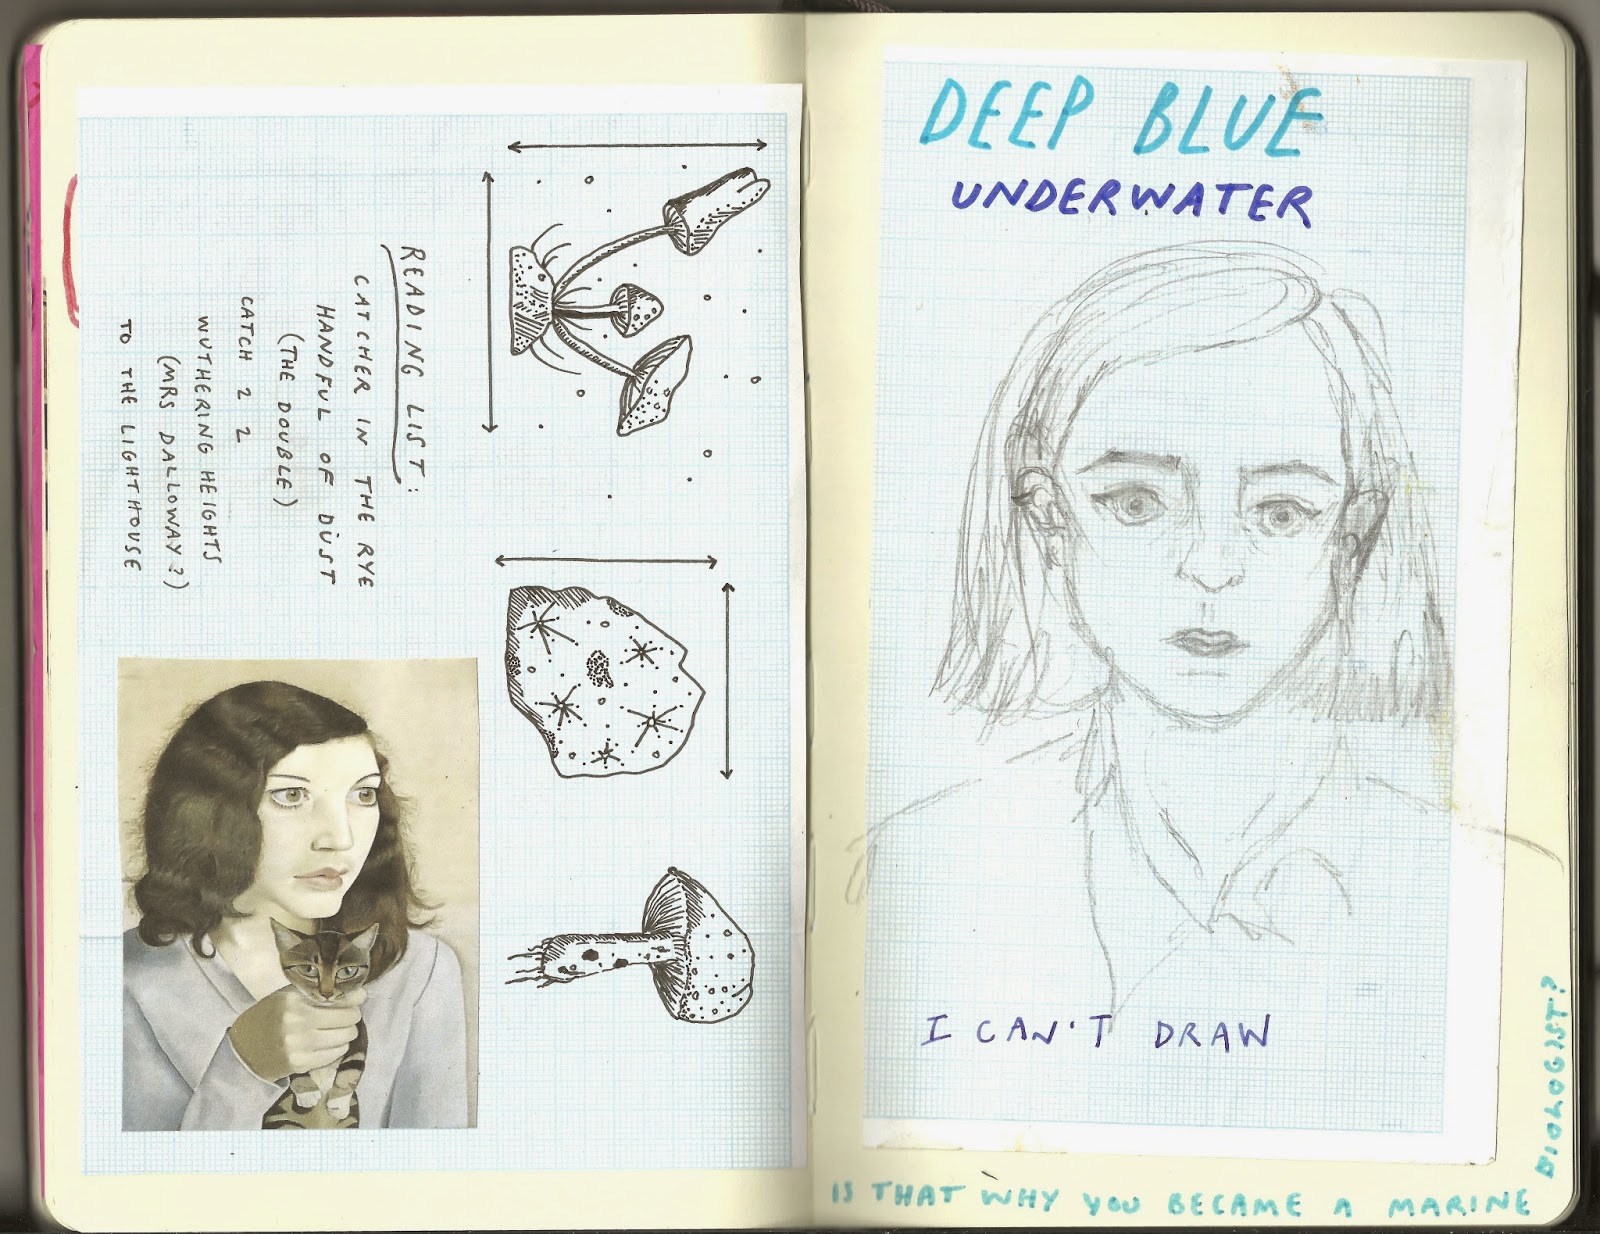 READING LIST:
CATCHER IN THE RYE
HANDFUL OF DUST
(THE DOUBLE)
CATCH 22
WUTHERING HEIGHTS
(MRS DALLOWAY?)
TO THE LIGHTHOUSE
DEEP BLUE
UNDERWATER
I CAN'T DRAW
IS THAT WHY YOU BECAME A MARINE
BIOLOGIST?